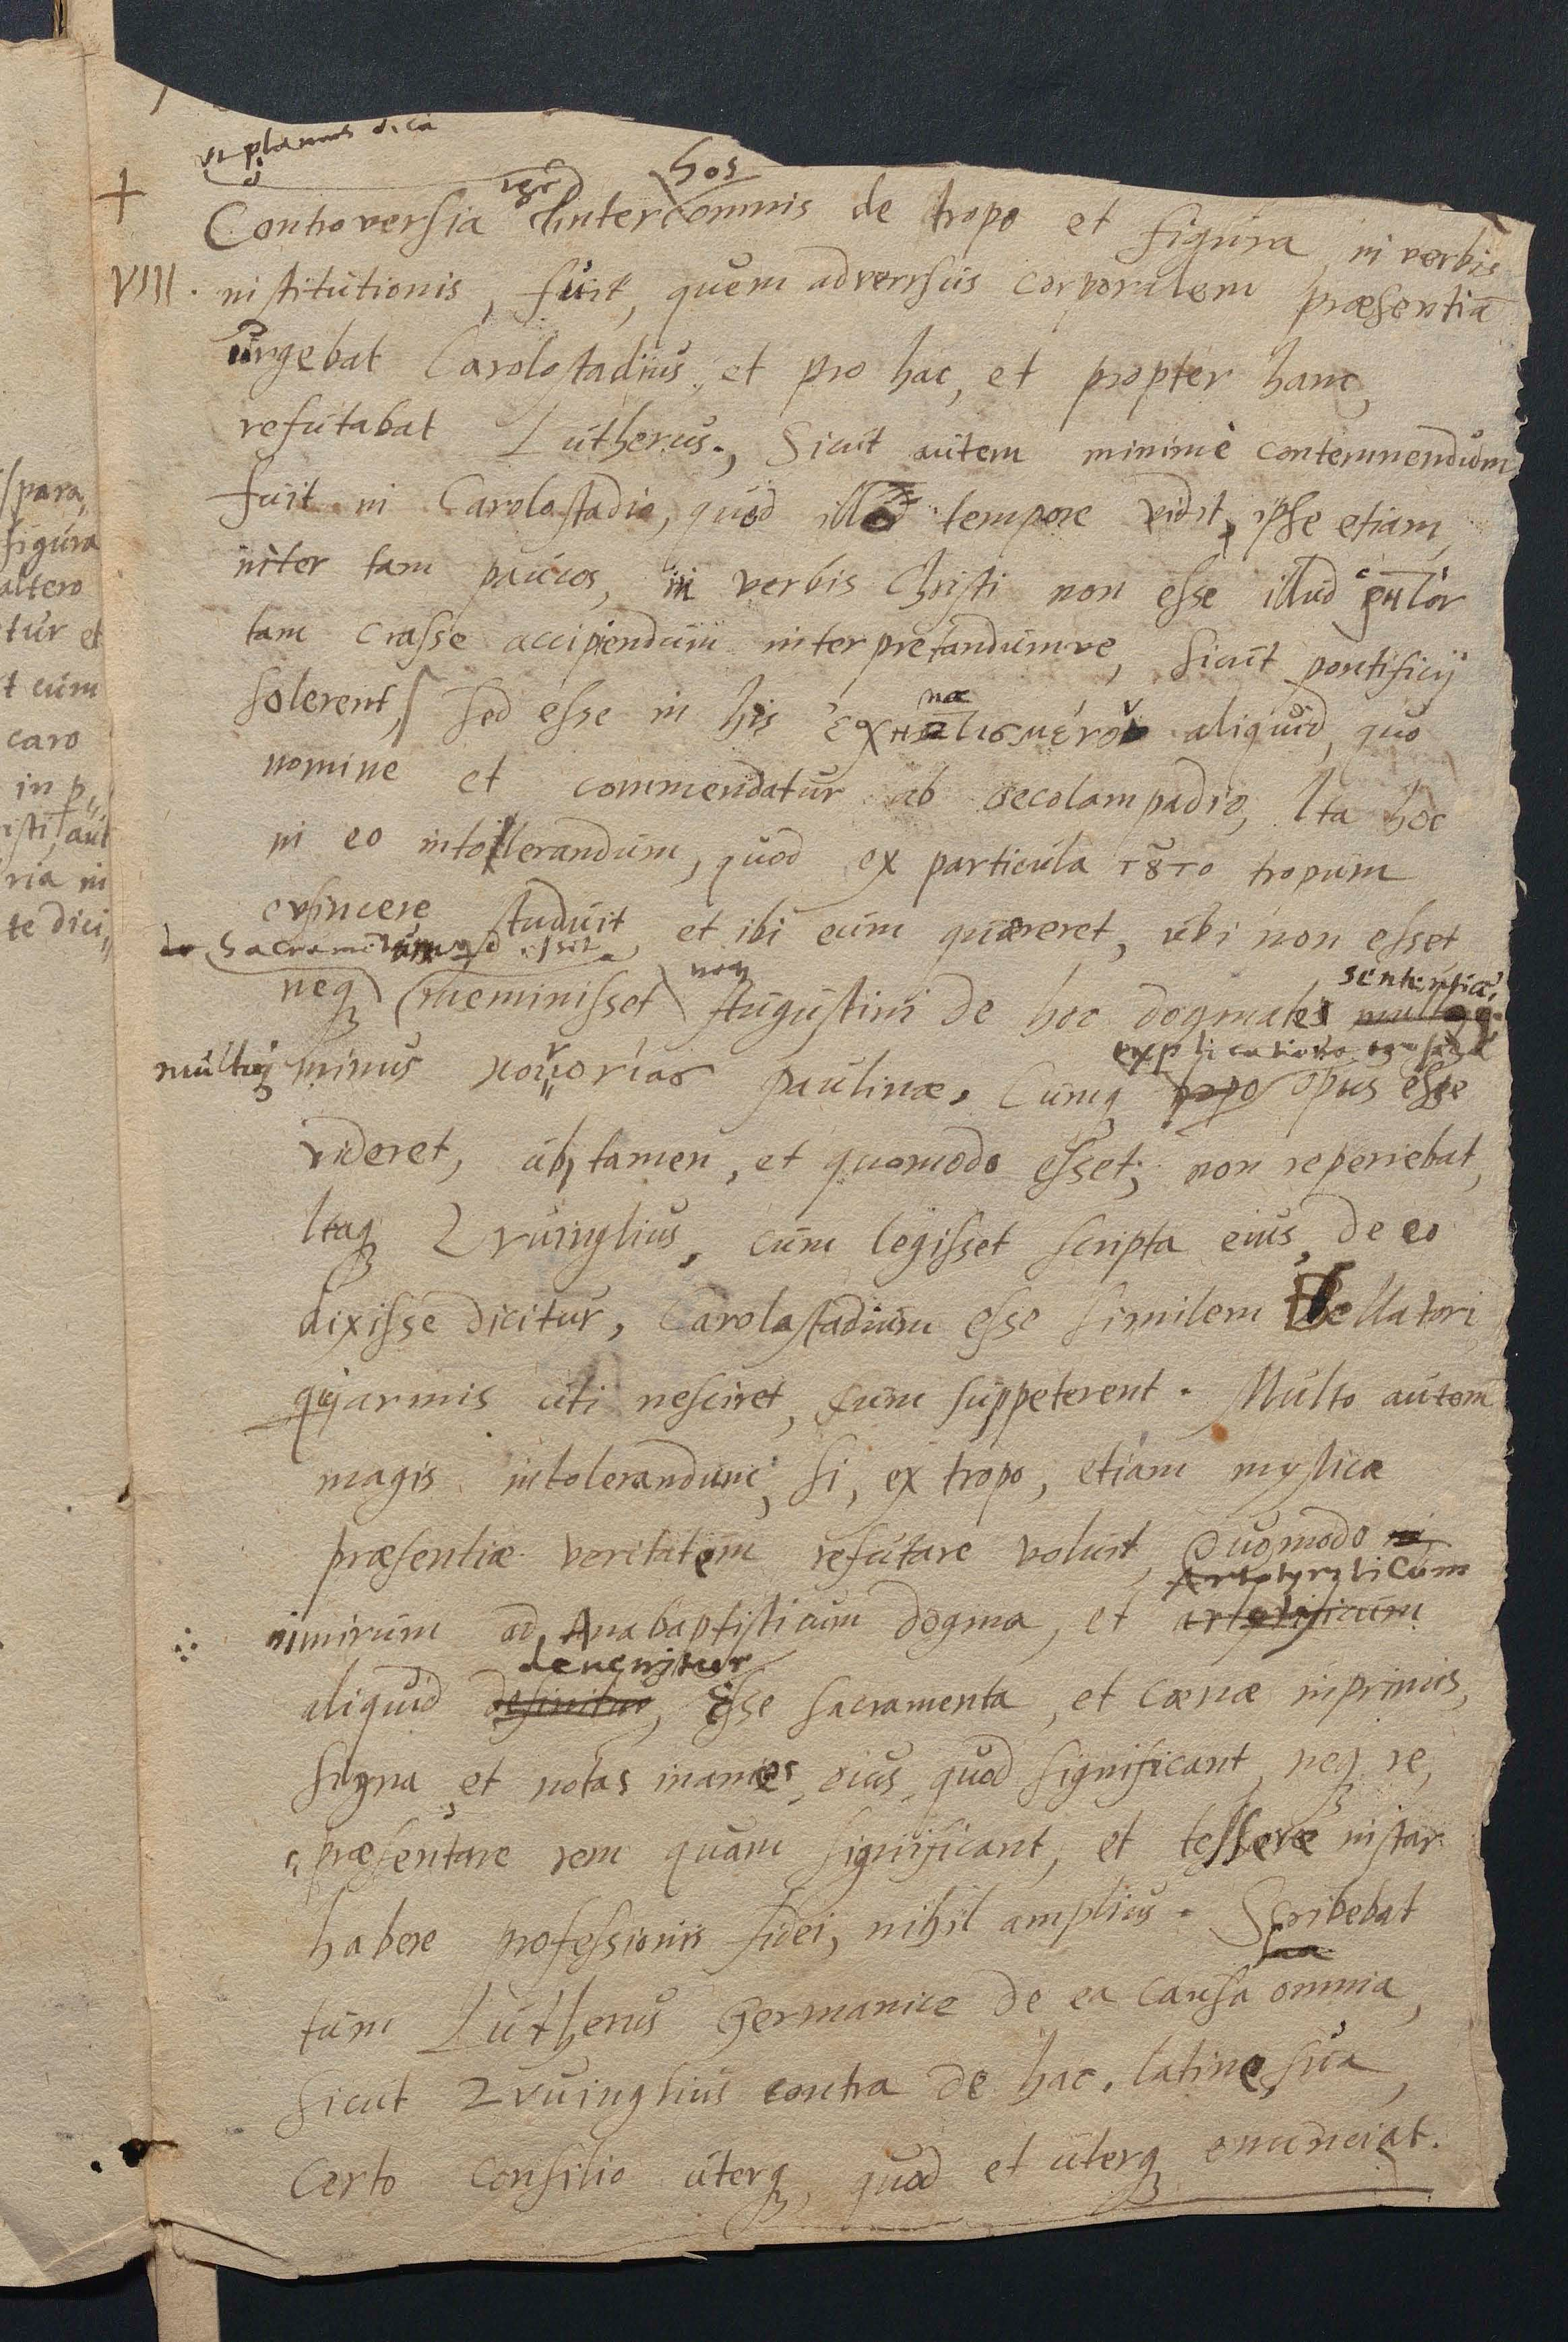 ut planius dicā
hos
+ Controversia inter omnis de tropo et figura in verbis
VIII. institutionis, fuit, quem adversus corporalem præsentiā
urgebat Carolostadius, et pro hac, et propter hanc,
refutabat Lutherus. Sicut autem minimè contemnendum
fuit in Carolostadio, quod illo tempore vidit, ipse etiam
inter tam paucos, in verbis Christi non esse illud ῥητὸν
tam crasse accipiendum interpretandumve, sicut pontificij
solerent, sed esse in his ἐσχηματισμένον aliquid, quo
nomine et commendatur ab Oecolampadio, Ita hoc
in eo intollerandum, quod ex particula τȣ̃το tropum
evincere studuit, et ibi eum quæreret, ubi non esset
neqꝫ meminisset Augustini de hoc dogmate sententiæ,
multoqꝫ minus κοινωνίας paulinæ. Cumqꝫ explicatione opus esse
videret, ubi tamen, et quomodo esset, non reperiebat,
Itaqꝫ Zvuinglius, cum legisset scripta eius, de eo
dixisse dicitur, Carolastadium esse similem Bellatori
qui armis uti nesciret, cum suppeterent. Multo autem
magis intolerandum, si, ex tropo, etiam mysticæ
præsentiæ veritatem refutare voluit, Quomodo
Artotyriticum
nimirum ad Anabaptisticum dogma, et
devenitur
aliquid definitur, Esse sacramenta, et cœnæ inprimis,
signa et notas inanes, eius, quod significant, neqꝫ re,
præsentare rem quam significant, et tesseræ instar
habere professionis fidei, nihil amplius. Scribebat
tum Lutherus Germanice de ea causa omnia,
sicut Zvuinglius contra de hac, latine sua,
certo consilio uterqꝫ, quod et uterqꝫ enunciat.
spara,
figura
altero
tur et
t cum
caro
in p,,
isti, aut
ria in
te dici,,